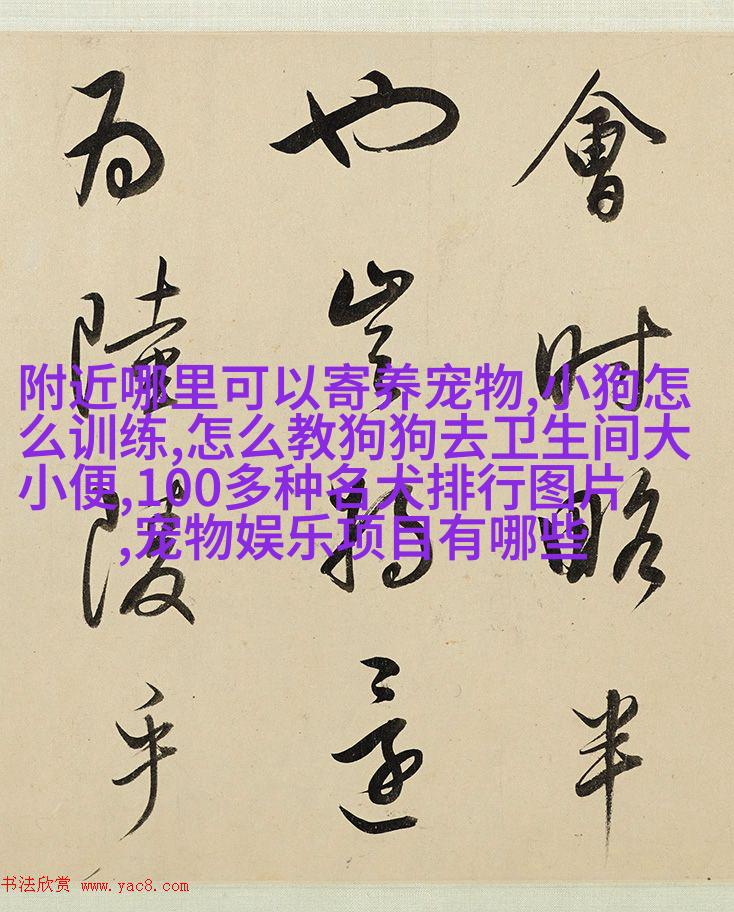 會時略半
也豈
為陵乎
附近哪里可以寄养宠物,小狗怎
么训练,怎么教狗狗去卫生间大
小便,100多种名犬排行图片
,宠物娱乐项目有哪些
书法欣赏 www.yac8.com